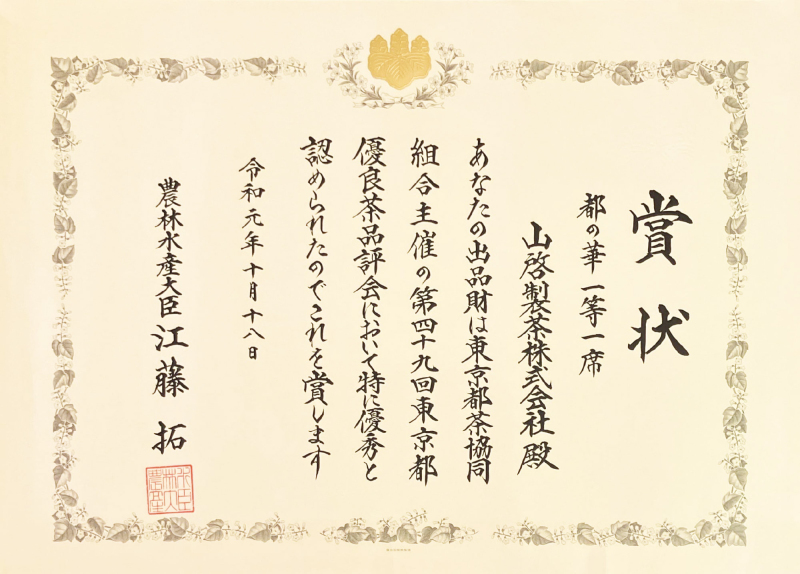 賞状
都の華 一等一席
山啓製茶株式会社殿
あなたの出品財は東京都茶協同
組合主催の第四十九回東京都
優良茶品評会において特に優秀と
認められたのでこれを賞します
令和元年十月十八日
農林水産大臣 江藤 拓